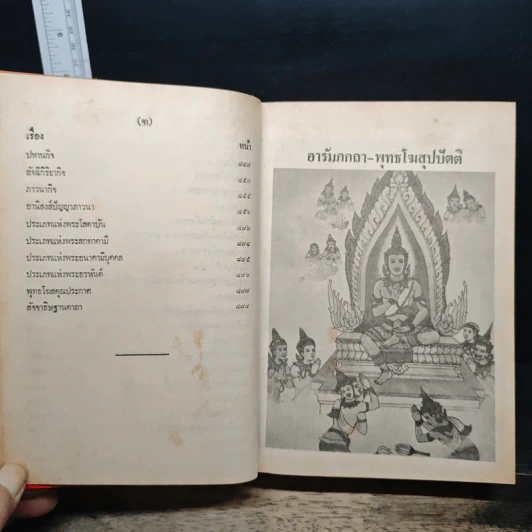 เรื่อง
หน้า
ปหานกิจ
สัจฉิกิริยากิจ
ภาวนากิจ
อานิสงส์ปัญญาภาวนา
ประเภทแห่งพระโสดาบัน
ประเภทแห่งพระสกทาคามี
ประเภทแห่งพระอนาคามีบุคคล
ประเภทแห่งพระอรหันต์
พุทธโฆสคุณประกาศ
สัจจาธิษฐานคาถา
อารัมภกถา-พุทธโฆสุปปัตติ